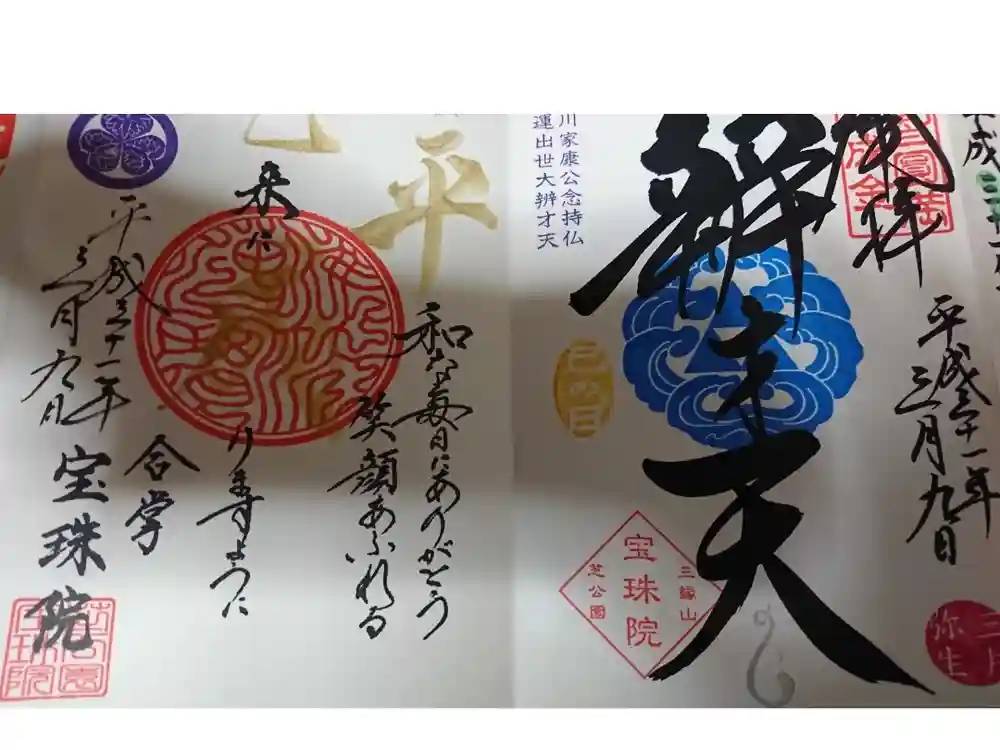 平成
奉拝
平成三十一年
三月九日
三月
弥生
辨才天
川家康公念持仏
運出世大辨才天
己の日
三縁山
宝珠院
芝公園
平
和な毎日にありがとう
笑顔あふれる
来に
けますように
合掌
平成三十一年
三月九日
宝珠院